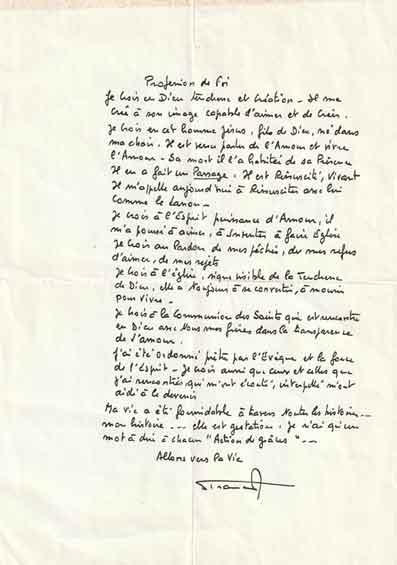 Profession de Foi
Je crois en Dieu tendresse et création - Il me
créé à son image capable d'aimer et de créer.
Je crois en cet homme Jésus, fils de Dieu, né dans
ma chair. Il est venu parler de l'Amour et vivre
l'Amour - Sa mort il l'a habitée de sa Présence
Il en a fait un Passage. Il est Ressuscité, Vivant
Il m'appelle aujourd'hui à Ressusciter avec lui
comme le
Je crois à l'Esprit puissance d'Amour, il
m'a poussé à aimer, à inventer, à faire Église
Je crois au Pardon de mes péchés, de mes refus
d'aimer, de mes rejets
Je crois à l'église, signe visible de la Tendresse
de Dieu, elle a toujours à se convertir, à mourir
pour vivre -
Je crois à la Communion des Saints qui est rencontre
en Dieu avec tous mes frères dans la transparence
de l'amour.
J'ai été ordonné prêtre par l'Evêque et la force
de l'Esprit - Je crois aussi que ceux et celles que
j'ai rencontrés, qui m'ont écouté, interpellé m'ont
aidé à le devenir
Ma vie a été formidable à travers toutes les histoires...
mon histoire --- elle est gestation. Je n'ai qu'un
mot à dire à chacun "Action de grâces" ---
Allons vers la Vie